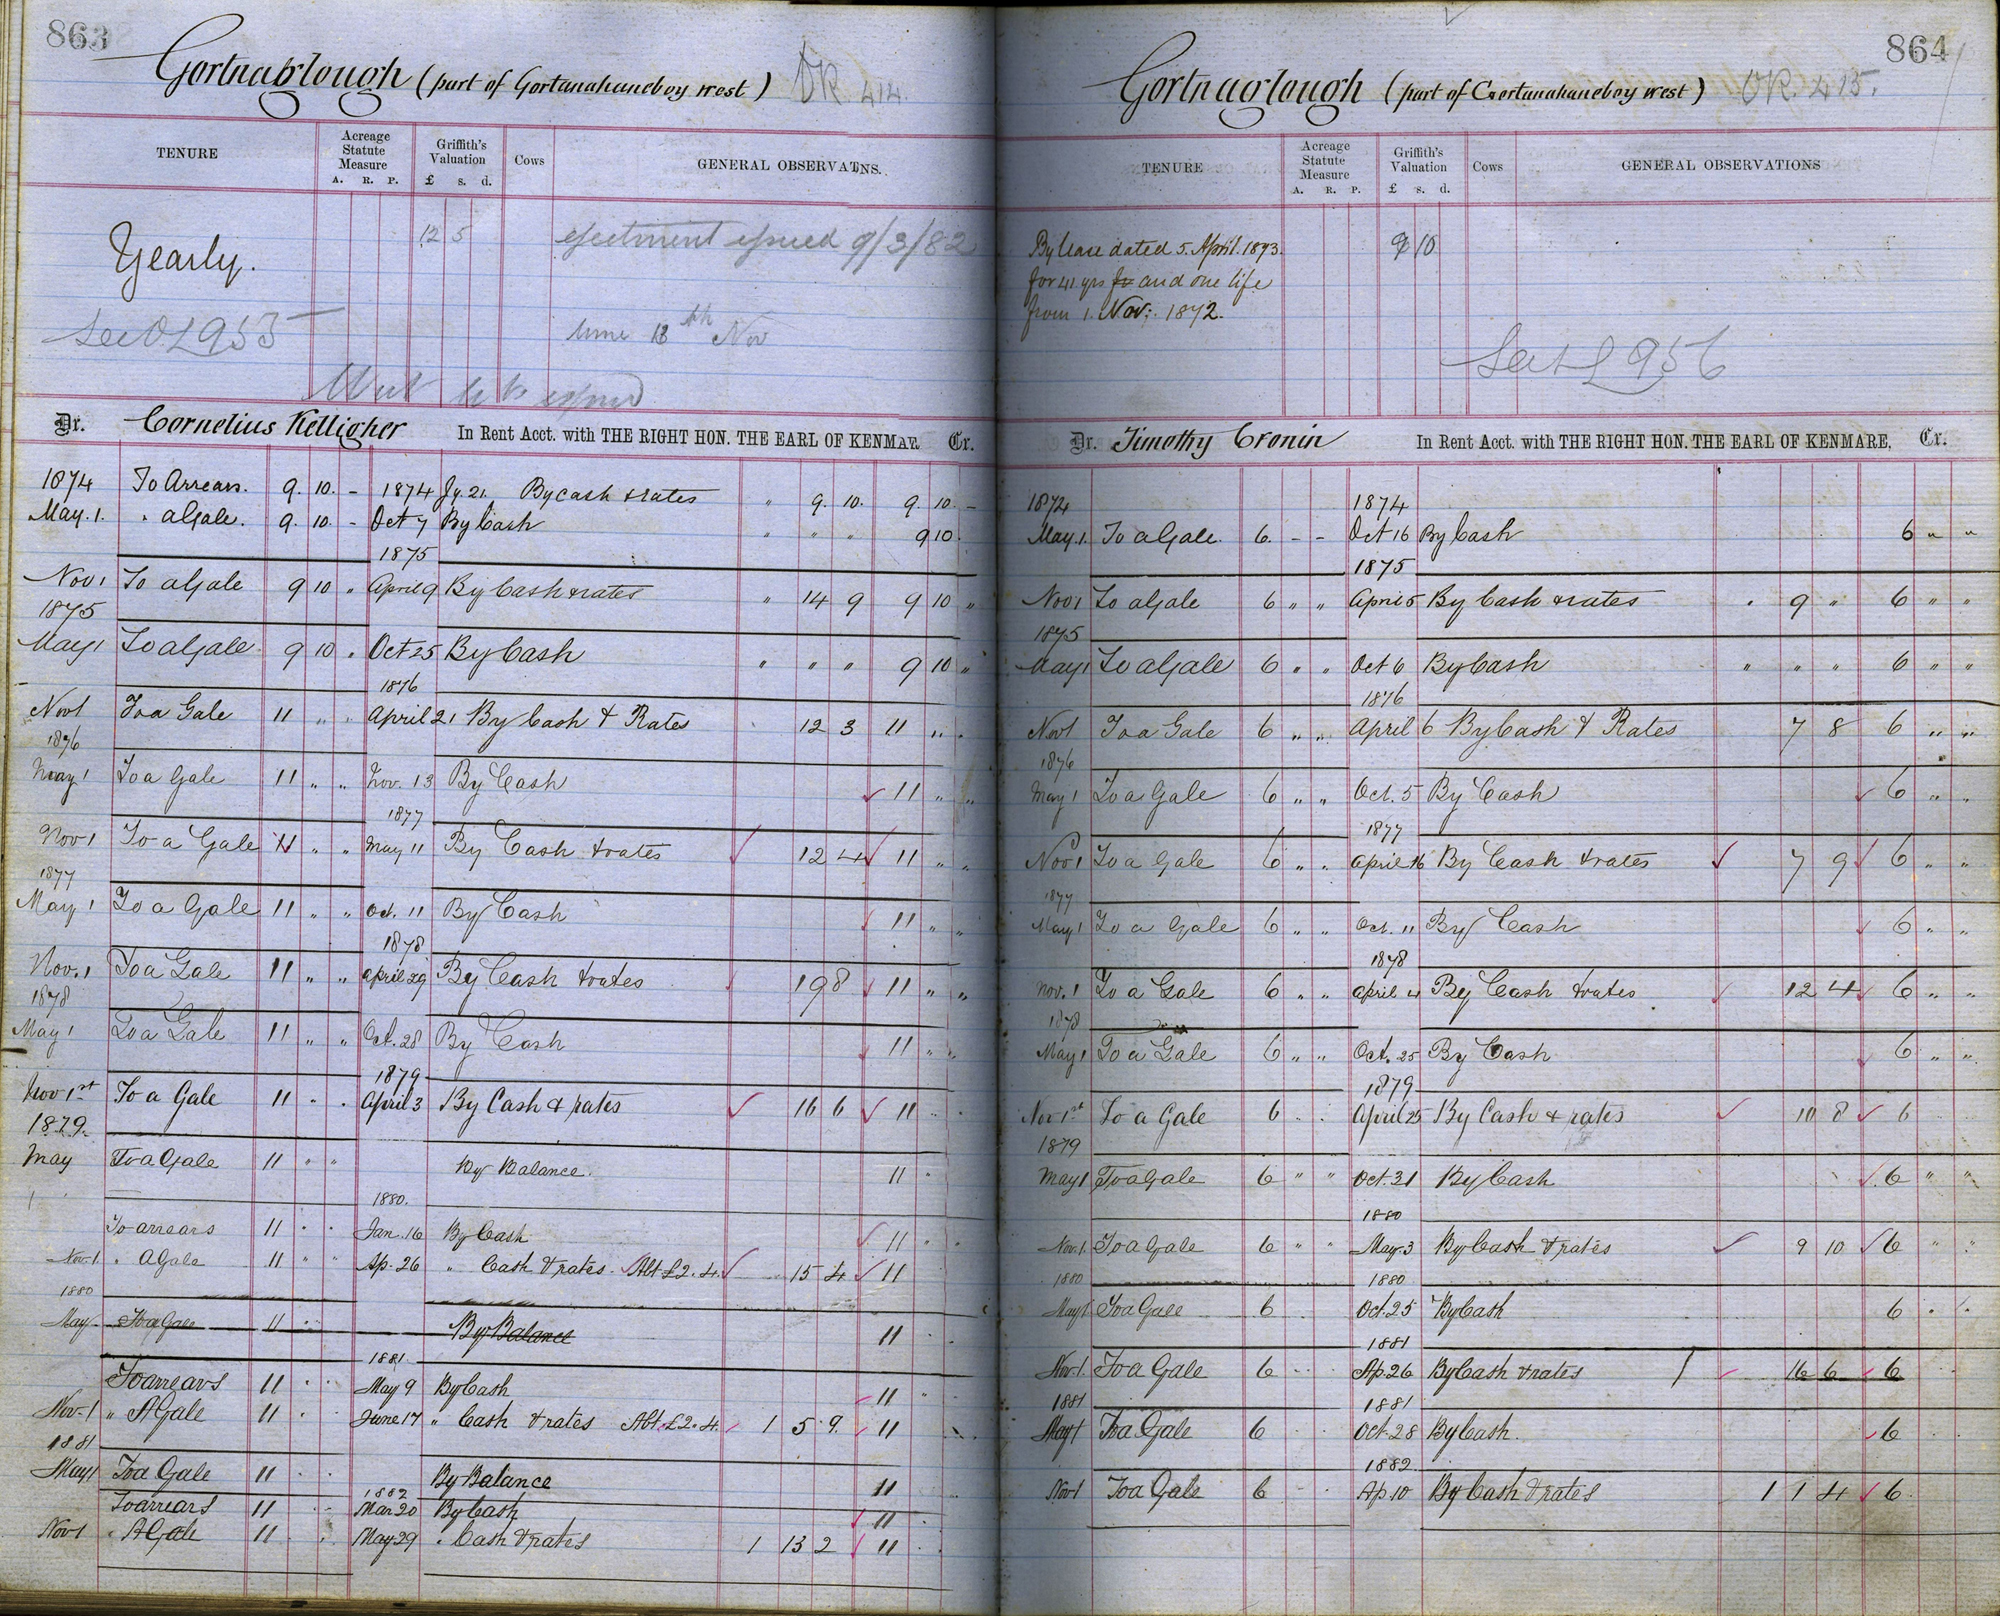 863
Gortnaglough (part of Gortanahaneboy west) OR 414.
TENURE
Acreage Statute Measure
A. R. P.
Griffith's Valuation
£ s. d.
Cows
GENERAL OBSERVATNS.
Yearly.
12 5
ejectment issued 9/3/82
See OL 953
Nov
Dr. Cornelius Kelligher In Rent Acct. with THE RIGHT HON. THE EARL OF KENMAR Cr.
1874 To Arrears. 9. 10. - 1874 Jy. 21. By cash & rates " 9. 10. 9. 10. -
May. 1. " a Gale. 9. 10. - Oct 7 By Cash " " " 9 10.
1875
Nov 1 To a Gale 9 10 " April 9 By Cash & rates " 14 9 9 10 "
1875
May 1 To a Gale 9 10 " Oct 25 By Cash " " " 9 10 "
1876
Nov 1 To a Gale 11 " " April 21 By Cash & Rates 12 3 11 " "
1876
May 1 To a Gale 11 " " Nov. 13 By Cash 11 " "
1877
Nov 1 To a Gale 11 " " May 11 By Cash & rates 12 4 11 " "
1877
May 1 To a Gale 11 " " Oct. 11 By Cash 11 " "
1878
Nov. 1 To a Gale 11 " " April 29 By Cash & rates 19 8 11 " "
1878
May 1 To a Gale 11 " " Oct. 28 By Cash 11 " "
1879
Nov 1st To a Gale 11 " " April 3 By Cash & rates 16 6 11 " "
1879.
May To a Gale 11 " " By Balance. 11 "
1 1880.
To arrears 11 " " Jan. 16 By Cash 11 " "
Nov. 1 " A Gale 11 " " Ap. 26 " Cash & rates. Abt £2. 4. 15 4 11
1880
May To a Gale 11 " By Balance 11 "
1881.
To arrears 11 " " May 9 By Cash 11 "
Nov. 1 " A Gale 11 " June 17 " Cash & rates Abt £2. 4. 1 5 9. 11
1881
May 1 To a Gale 11 " By Balance 11
1882
To arrears 11 " Mar 20 By Cash 11
Nov 1 " A Gale 11 " May 29 " Cash & rates 1 13 2 11
864
Gortnaglough (part of Gortanahaneboy west) OR. 415.
TENURE
Acreage Statute Measure
A. R. P.
Griffith's Valuation
£ s. d.
Cows
GENERAL OBSERVATIONS
By lease dated 5. April. 1873.
for 41 yrs for and one life
from 1. Nov: 1872.
9 10
956
Dr. Timothy Cronin In Rent Acct. with THE RIGHT HON. THE EARL OF KENMARE, Cr.
1874 1874
May. 1. To a Gale. 6. - - Oct 16 By Cash 6 " "
1875
Nov 1 To a Gale 6 " " April 5 By Cash & rates " 9 " 6 " "
1875
May 1 To a Gale 6 " " Oct 6 By Cash " " " 6 " "
1876
Nov 1 To a Gale 6 " " April 6 By Cash & Rates 7 8 6 " "
1876
May 1 To a Gale 6 " " Oct. 5 By Cash 6 " "
1877
Nov 1 To a Gale 6 " " April 16 By Cash & rates 7 9 6 " "
1877
May 1 To a Gale 6 " " Oct. 11 By Cash 6 " "
1878
Nov. 1 To a Gale 6 " " April 4 By Cash & rates 12 4 6 " "
1878
May 1 To a Gale 6 " " Oct. 25 By Cash 6 " "
1879
Nov 1st To a Gale 6 " " April 25 By Cash & rates 10 8 6
1879
May 1 To a Gale 6 " " Oct. 31 By Cash 6 " "
1880
Nov. 1. To a Gale 6 " " May. 3 By Cash & rates 9 10 6 " "
1880 1880
May 1 To a Gale 6 Oct. 25 By Cash 6 " "
1881
Nov. 1 To a Gale 6 " " Ap. 26 By Cash & rates 16 6 6
1881 1881
May 1 To a Gale 6 " Oct 28 By Cash. 6
1882.
Nov 1 To a Gale 6 " Ap. 10 By Cash & rates 1 1 4 6